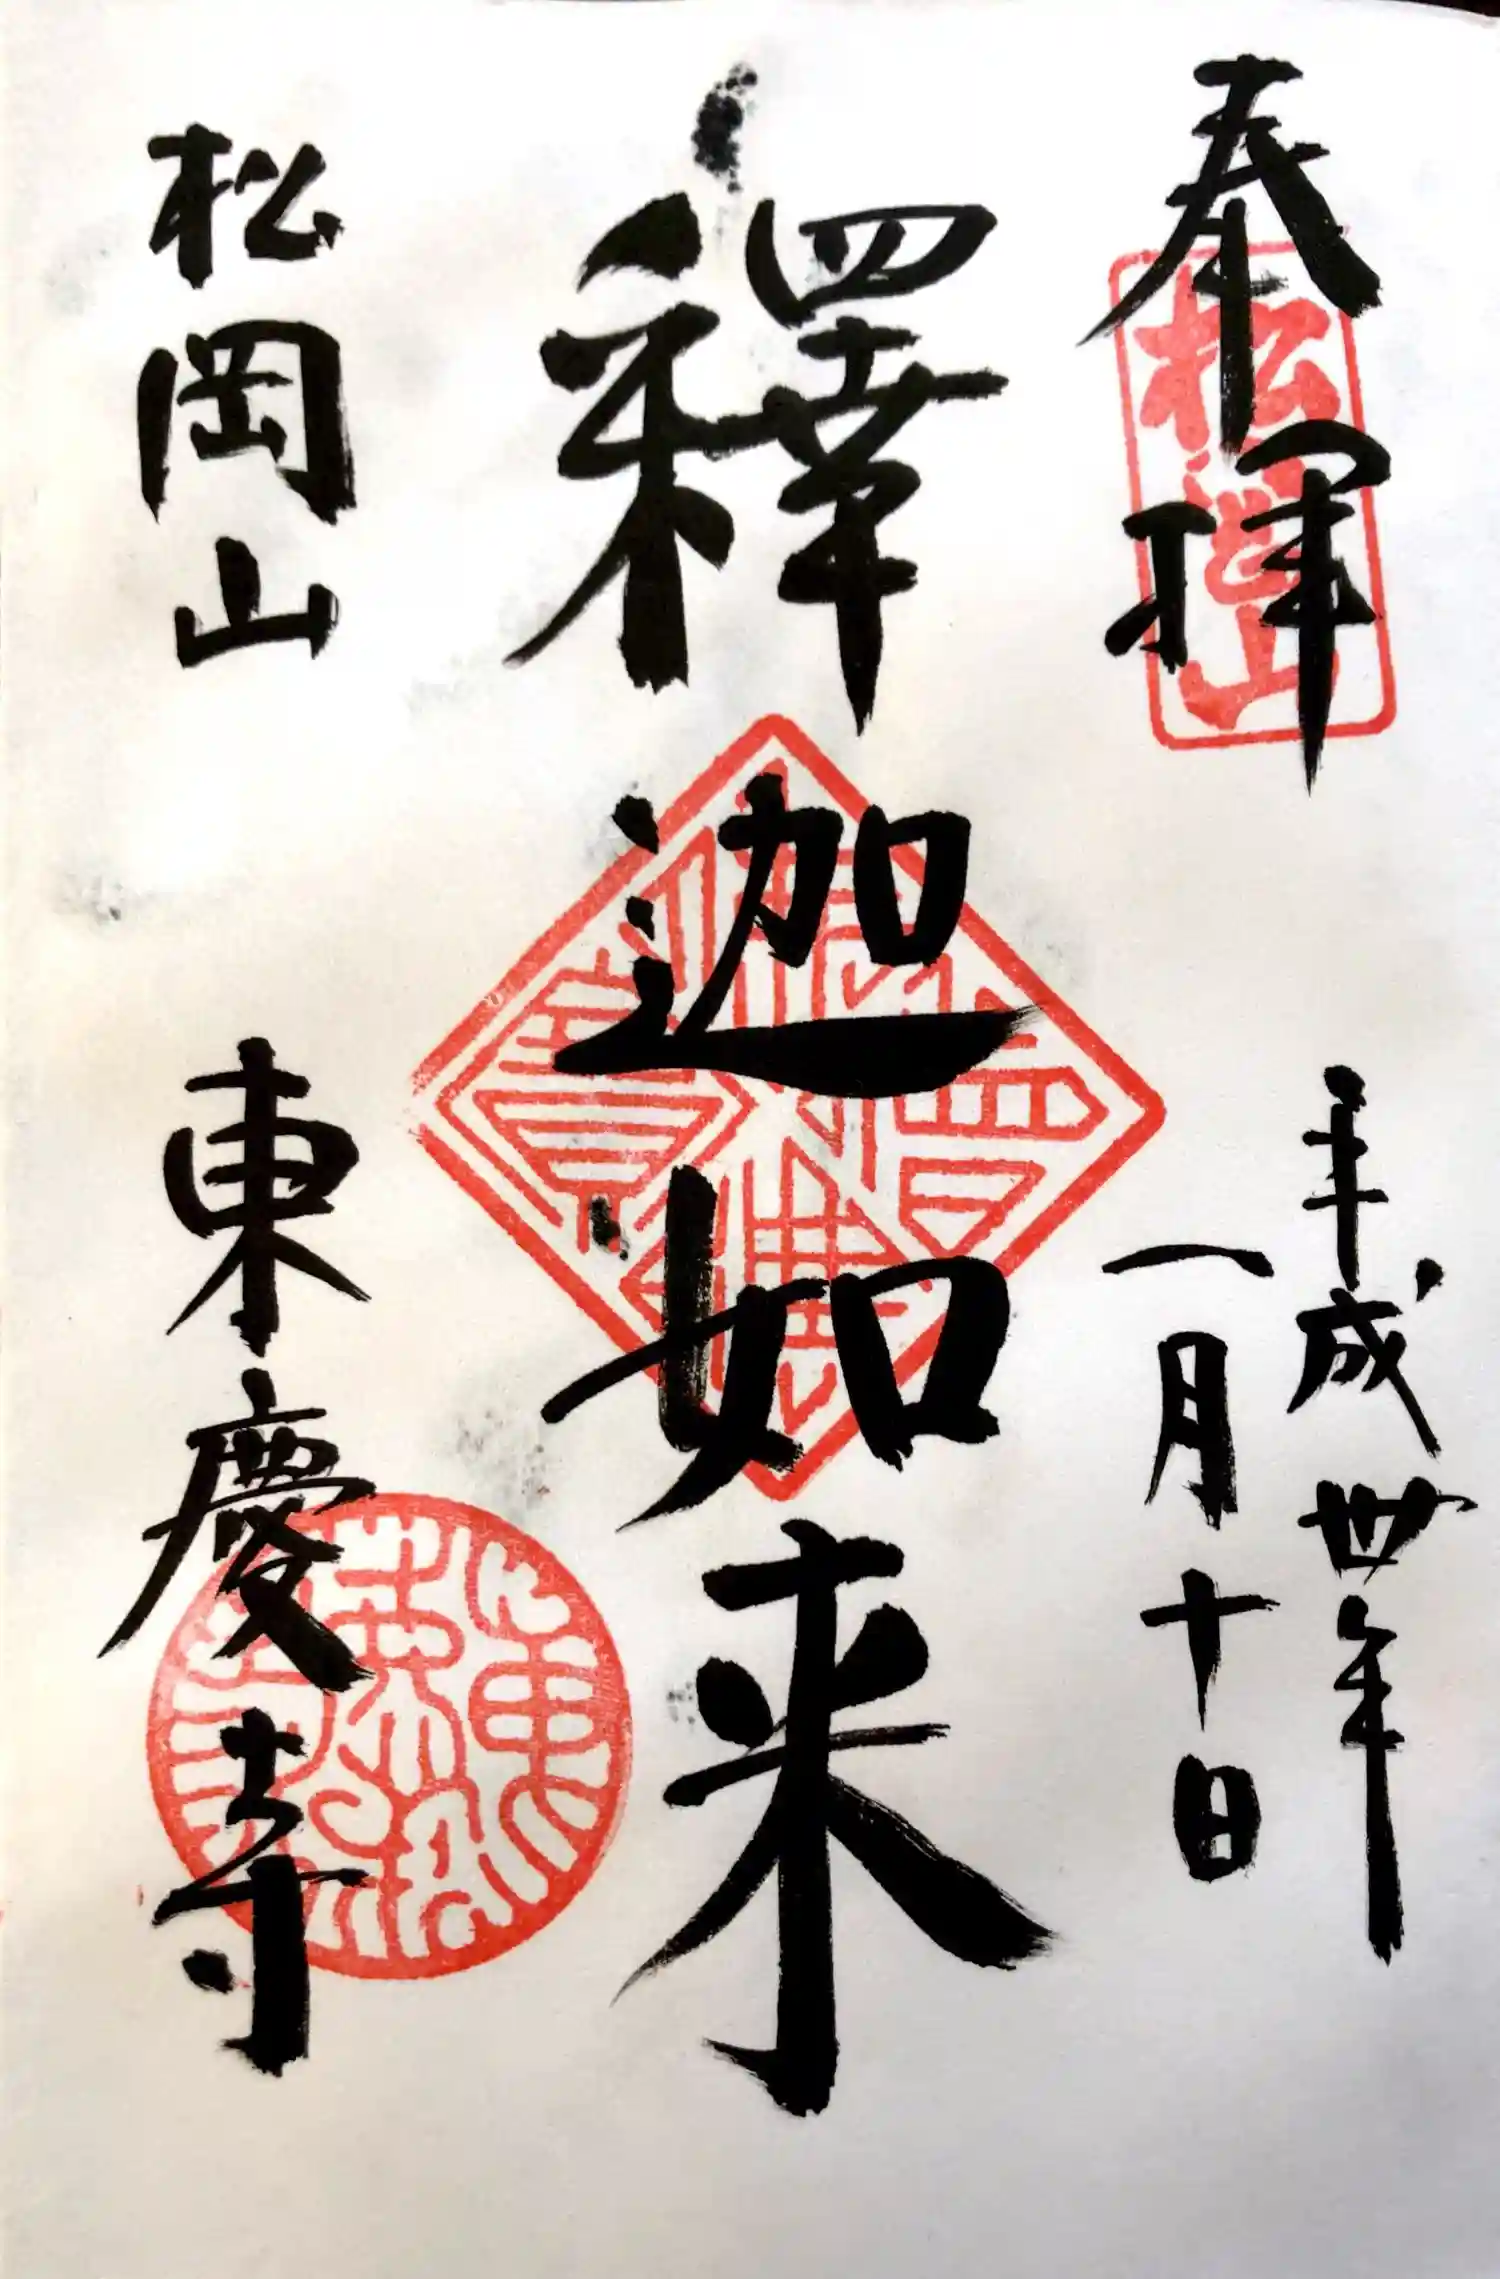 奉拝
平成卅年
一月十日
釋迦如来
松岡山
東慶寺
松岡山
佛法僧寶